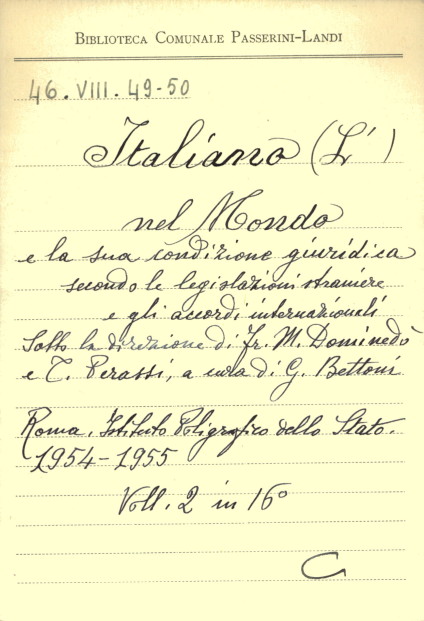 BIBLIOTECA COMUNALE PASSERINI-LANDI
46. VIII. 49-50
Italiano (L')
nel Mondo
e la sua condizione giuridica
secondo le legislazioni straniere
e gli accordi internazionali
Sotto la direzione di Fr. M. Dominedò
e T. Perassi, a cura di G. Bettoni
Roma. Istituto Poligrafico dello Stato.
1954-1955
Voll. 2 in 16°
C